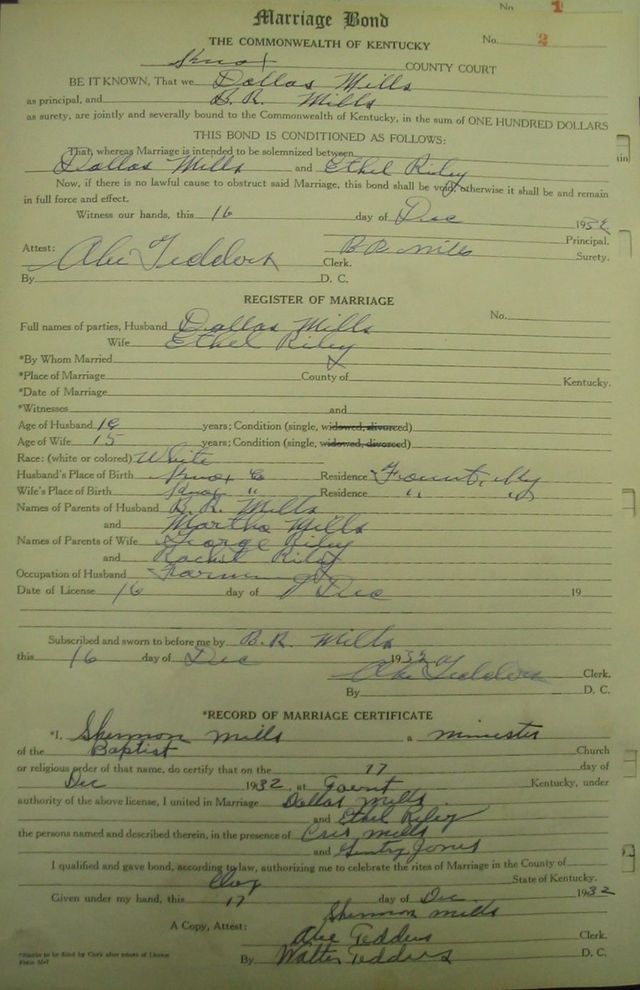 No. 1
Marriage Bond
THE COMMONWEALTH OF KENTUCKY
No. 2
Knox COUNTY COURT
BE IT KNOWN, That we Dallas Mills
as principal, and B. R. Mills
as surety, are jointly and severally bound to the Commonwealth of Kentucky, in the sum of ONE HUNDRED DOLLARS
THIS BOND IS CONDITIONED AS FOLLOWS:
That, whereas Marriage is intended to be solemnized between
Dallas Mills and Ethel Riley
Now, if there is no lawful cause to obstruct said Marriage, this bond shall be void, otherwise it shall be and remain
in full force and effect.
Witness our hands, this 16 day of Dec 1932
Principal.
Attest: B. R. Mills Surety.
Clerk.
By D. C.
REGISTER OF MARRIAGE
No.
Full names of parties, Husband Dallas Mills
Wife Ethel Riley
*By Whom Married
*Place of Marriage County of Kentucky.
*Date of Marriage
*Witnesses and
Age of Husband 19 years; Condition (single, widowed, divorced)
Age of Wife 15 years; Condition (single, widowed, divorced)
Race: (white or colored) White
Husband's Place of Birth Knox Co Residence Ky
Wife's Place of Birth Knox " Residence " "
Names of Parents of Husband B. R. Mills
and Martha Mills
Names of Parents of Wife George Riley
and Rachel Riley
Occupation of Husband Farming
Date of License 16 day of Dec 19
Subscribed and sworn to before me by B. R. Mills
this 16 day of Dec 1932
Clerk.
By D. C.
*RECORD OF MARRIAGE CERTIFICATE
*I, Shermon Mills a minister
of the Baptist Church
or religious order of that name, do certify that on the 17 day of
Dec 1932, at Kentucky, under
authority of the above license, I united in Marriage Dallas Mills
and Ethel Riley
the persons named and described therein, in the presence of Mills
and Gentry Jones
I qualified and gave bond, according to law, authorizing me to celebrate the rites of Marriage in the County of
Clay State of Kentucky.
Given under my hand, this 17 day of Dec 1932
Shermon Mills
A Copy, Attest: Abe Tedders Clerk.
By Walter Tedders D. C.